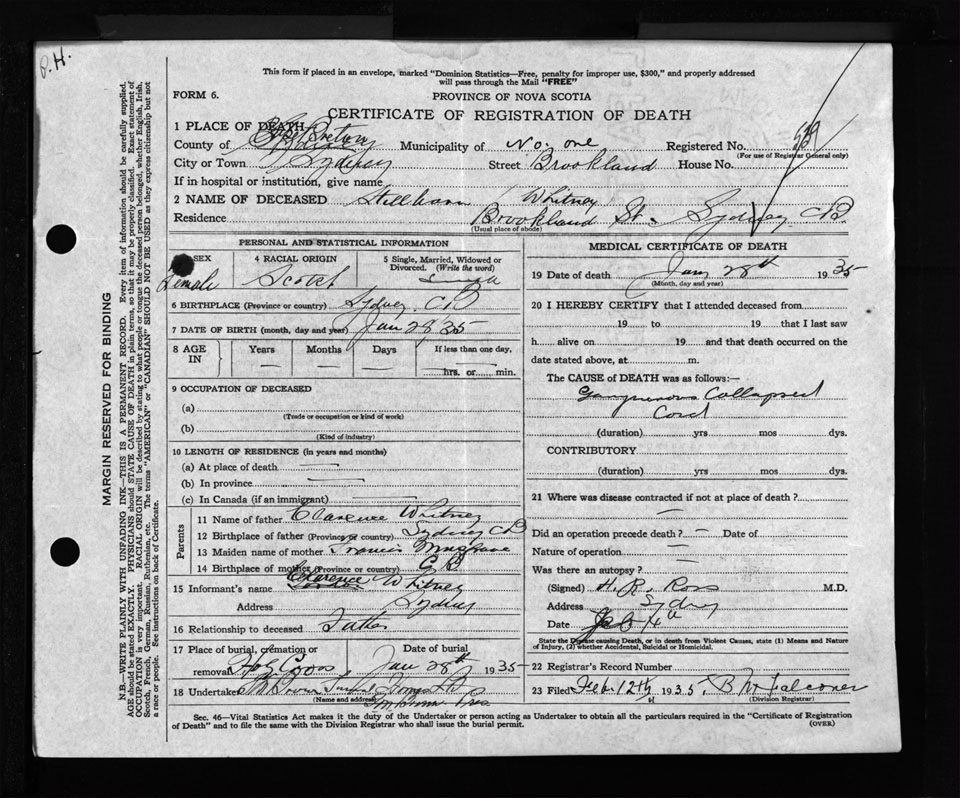 P.H.
This form if placed in an envelope, marked "Dominion Statistics—Free, penalty for improper use, $300," and properly addressed
will pass through the Mail "FREE"
FORM 6.
PROVINCE OF NOVA SCOTIA
CERTIFICATE OF REGISTRATION OF DEATH
1 PLACE OF DEATH
County of Cape Breton Municipality of No. one Registered No.
(For use of Registrar General only)
City or Town Sydney Street Brookland House No.
If in hospital or institution, give name
2 NAME OF DECEASED Stillborn Whitney
Residence Brookland St. Sydney CB
(Usual place of abode)
PERSONAL AND STATISTICAL INFORMATION
SEX 4 RACIAL ORIGIN 5 Single, Married, Widowed or
Divorced. (Write the word)
Female Scotch Single
6 BIRTHPLACE (Province or country) Sydney. CB
7 DATE OF BIRTH (month, day and year) Jan 28/35
8 AGE IN Years Months Days If less than one day,
— — — hrs. or min.
9 OCCUPATION OF DECEASED
(a)
(Trade or occupation or kind of work)
(b)
(Kind of industry)
10 LENGTH OF RESIDENCE (in years and months)
(a) At place of death —
(b) In province —
(c) In Canada (if an immigrant) —
Parents
11 Name of father Clarence Whitney
12 Birthplace of father (Province or country) Sydney CB
13 Maiden name of mother Francis Musgrave
14 Birthplace of mother (Province or country) C B
15 Informant's name Clarence Whitney
Address Sydney
16 Relationship to deceased Father
17 Place of burial, cremation or Date of burial
removal Holy Cross Jan 28th 1935
18 Undertaker
(Name and address)
MEDICAL CERTIFICATE OF DEATH
19 Date of death Jan 28th 1935
(Month, day and year)
20 I HEREBY CERTIFY that I attended deceased from
19 to 19 that I last saw
h alive on 19 and that death occurred on the
date stated above, at m.
The CAUSE of DEATH was as follows:—
Gangrenous Collapsed
Cord
(duration) yrs mos dys.
CONTRIBUTORY
(duration) yrs mos dys.
21 Where was disease contracted if not at place of death?
—
Did an operation precede death? — Date of
Nature of operation —
Was there an autopsy? —
(Signed) H. R. Ross M.D.
Address Sydney
Date Feb 4th
State the Disease causing Death, or in death from Violent Causes, state (1) Means and Nature
of Injury, (2) whether Accidental, Suicidal or Homicidal.
22 Registrar's Record Number
23 Filed Feb. 12th 1935. B McFalconer
(Division Registrar)
Sec. 46—Vital Statistics Act makes it the duty of the Undertaker or person acting as Undertaker to obtain all the particulars required in the "Certificate of Registration
of Death" and to file the same with the Division Registrar who shall issue the burial permit. (OVER)
MARGIN RESERVED FOR BINDING
N.B.—WRITE PLAINLY WITH UNFADING INK—THIS IS A PERMANENT RECORD. Every item of information should be carefully supplied.
AGE should be stated EXACTLY. PHYSICIANS should STATE CAUSE OF DEATH in plain terms, so that it may be properly classified. Exact statement of
OCCUPATION is very important. RACIAL ORIGIN will be described by stating to what people or tongue the deceased person belonged, whether English, Irish,
Scotch, French, German, Russian, Ruthenian, etc. The terms "AMERICAN" or "CANADIAN" SHOULD NOT BE USED as they express citizenship but not
a race or people. See instructions on back of Certificate.